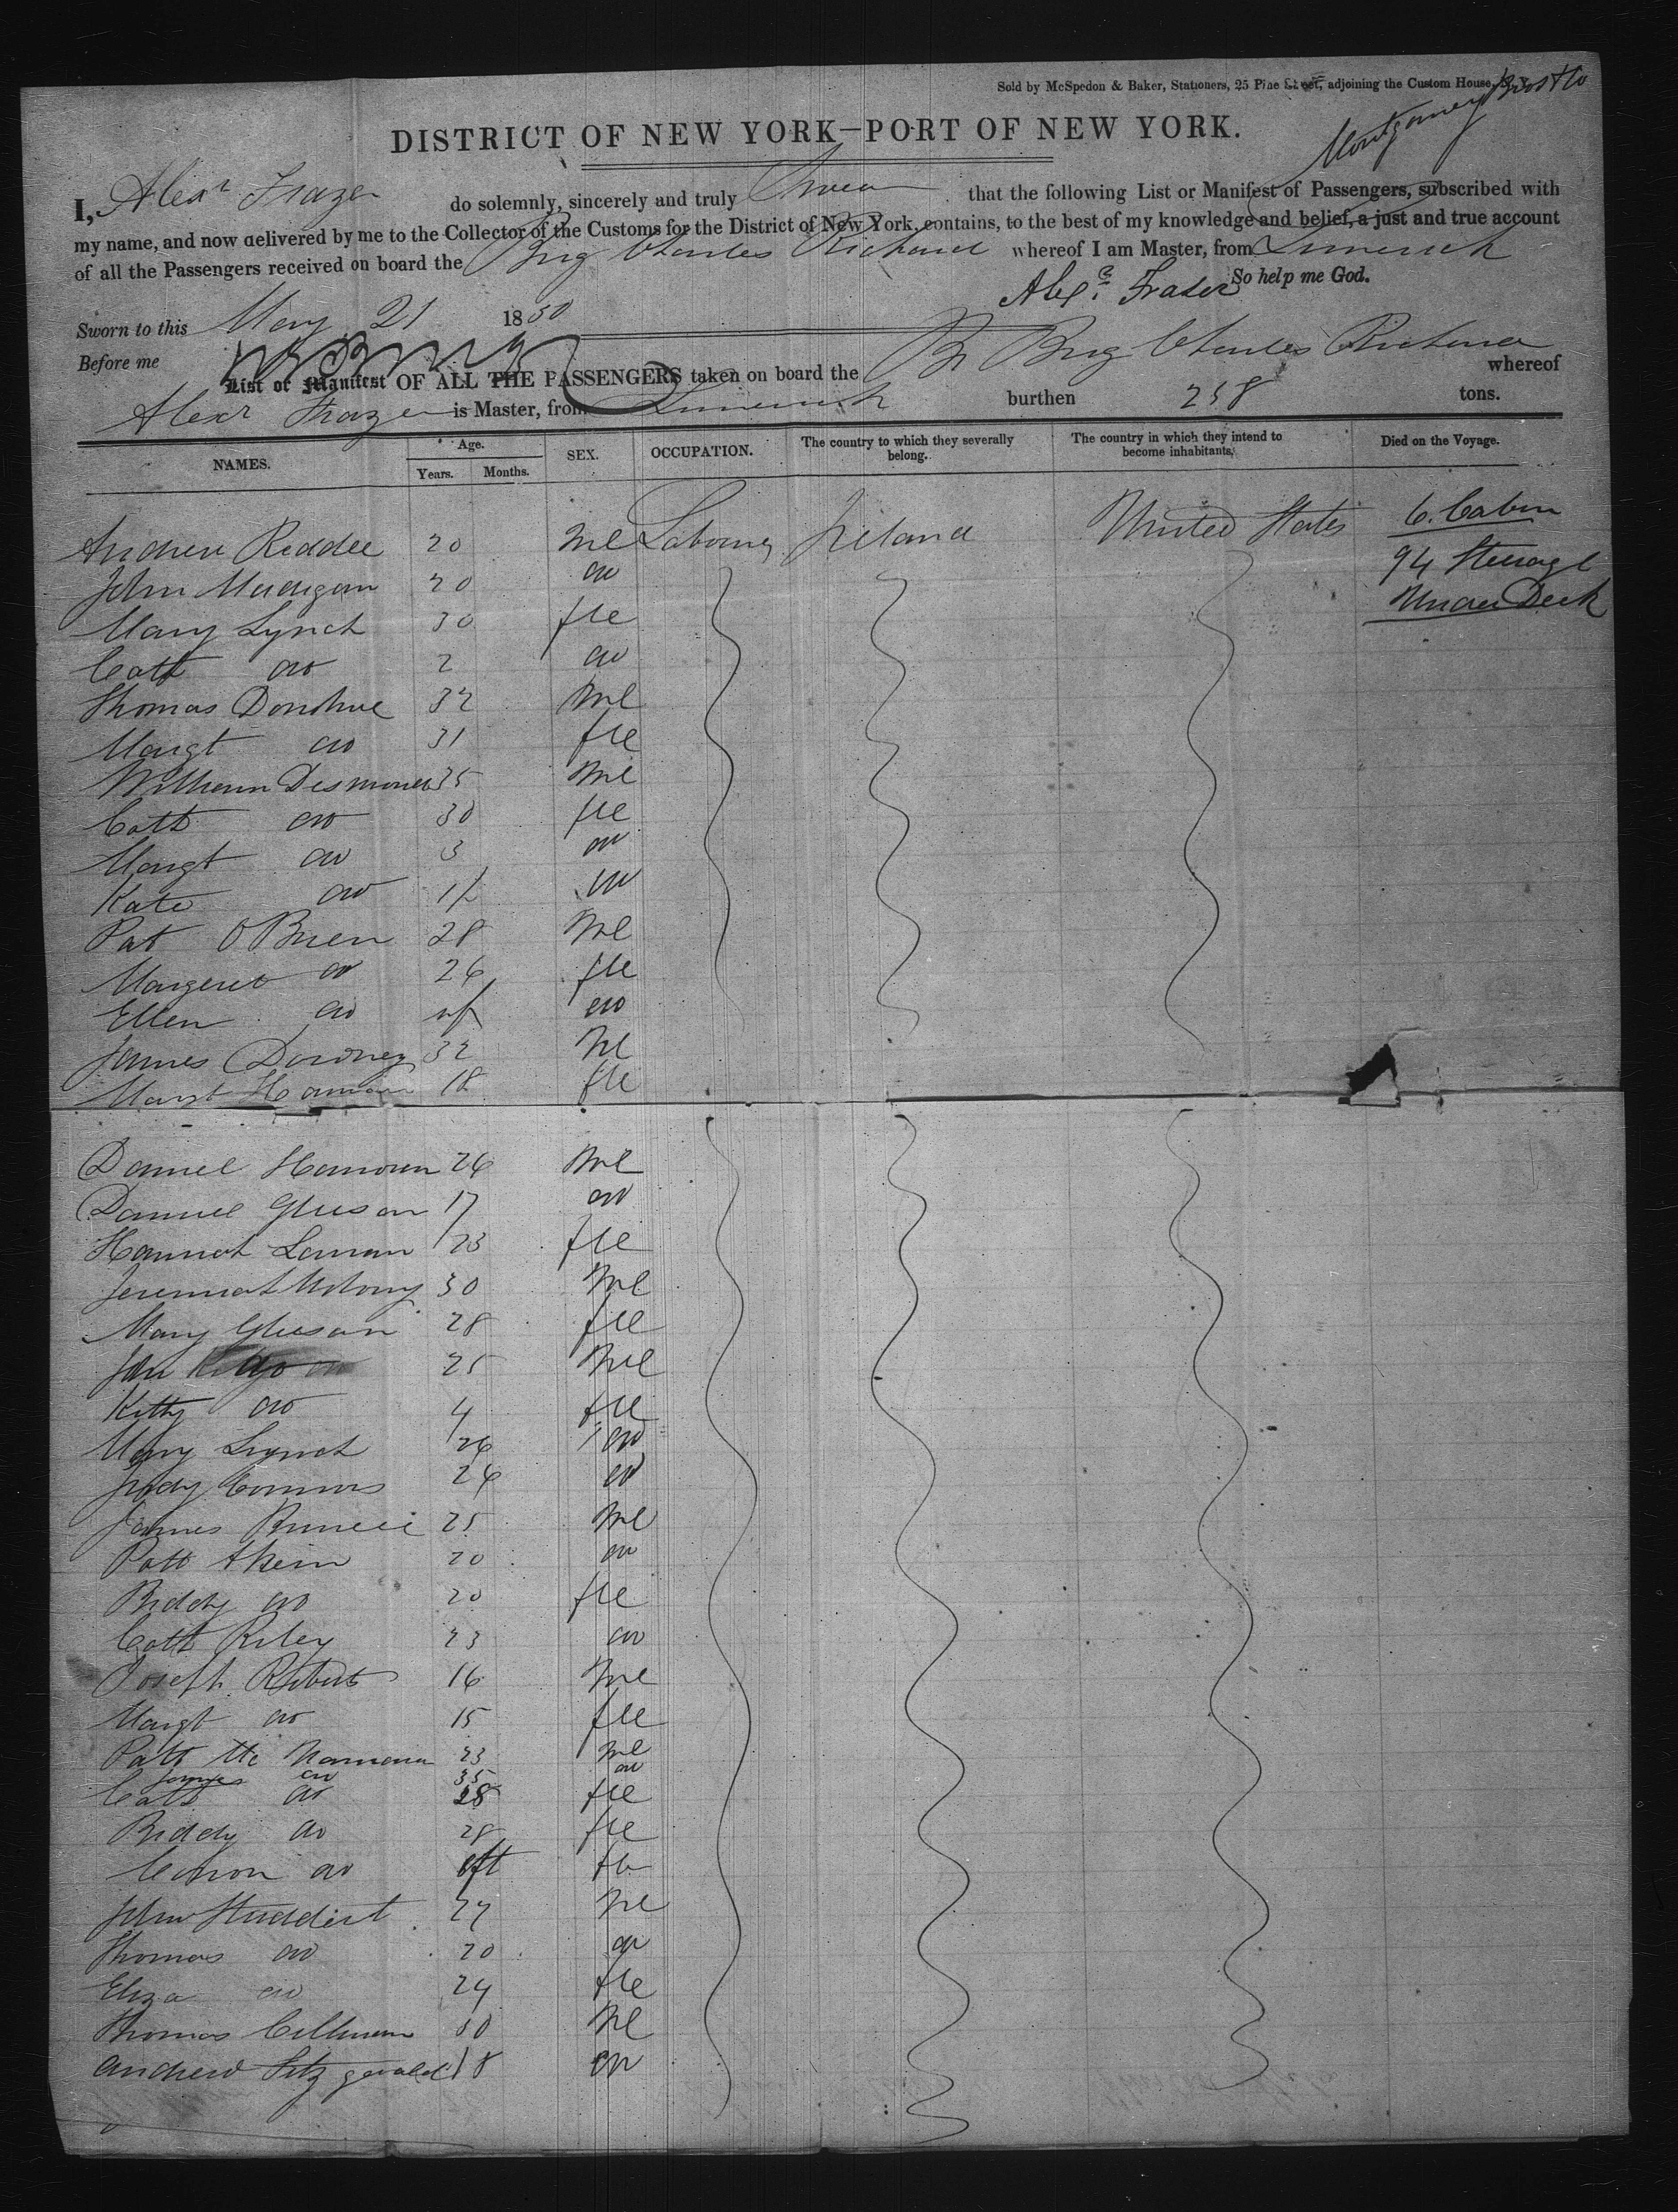 Sold by McSpedon & Baker, Stationers, 25 Pine Street, adjoining the Custom House, N. Y.
Montgomery
DISTRICT OF NEW YORK—PORT OF NEW YORK.
I, Alexr Frazer do solemnly, sincerely and truly Swear that the following List or Manifest of Passengers, subscribed with
my name, and now delivered by me to the Collector of the Customs for the District of New York, contains, to the best of my knowledge and belief, a just and true account
of all the Passengers received on board the Brig Charles Richard whereof I am Master, from Limerick
So help me God.
Alexr. Frazer
Sworn to this May 21 1850
Before me
List or Manifest OF ALL THE PASSENGERS taken on board the Br Brig Charles Richard whereof
Alexr Frazer is Master, from Limerick burthen 258 tons.
NAMES. Age. Years. Months. SEX. OCCUPATION. The country to which they severally belong. The country in which they intend to become inhabitants. Died on the Voyage.
Andrew Reddee 20 Mle Labourer Ireland United States 6. Cabin
John Madigan 20 do 94 Steerage
Mary Lynch 30 fle Under Deck
Cath do 2 do
Thomas Donohue 32 Mle
Margt do 31 fle
William Desmond 35 Mle
Cath do 30 fle
Margt do 3 do
Kate do 1/2 do
Pat O Brien 28 Mle
Margeret do 26 fle
Ellen do inf do
James Downey 32 Ml
Margt 18 fle
Daniel 26 Mle
Daniel Gleeson 17 do
Hannah 23 fle
Jeremiah 30 Mle
Mary Gleeson 28 fle
25 Mle
Kitty do 4 fle
Mary Lynch 26 do
Judy Connors 26 do
James 25 Mle
Patt Ahern 20 do
Biddy do 20 fle
Cath Riley 23 do
Joseph Roberts 16 Mle
Margt do 15 fle
Patt Mc Namara 23 Mle
James do 35 do
Cath do 28 fle
Biddy do 28 fle
do ift fle
John Studdert 27 Ml
Thomas do 20 do
Eliza do 24 fle
Thomas 30 Ml
Andrew Fitzgerald 18 do